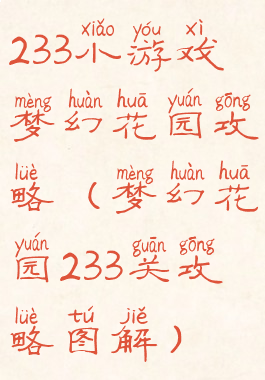 xiǎo yóu xì
233小游戏
mèng huàn huā yuán gōng
梦幻花园攻
lüè mèng huàn huā
略（梦幻花
yuán guān gōng
园233关攻
lüè tú jiě
略图解）